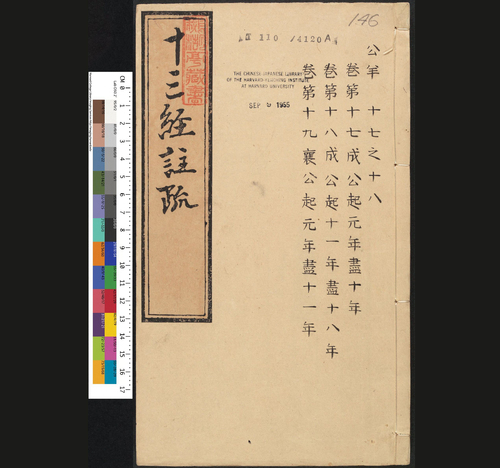 146
公羊 十七之十八
卷第十七成公起元年盡十年
卷第十八成公起十一年盡十八年
卷第十九襄公起元年盡十一年
II 110 /4120A
THE CHINESE-JAPANESE LIBRARY
OF THE HARVARD-YENCHING INSTITUTE
AT HARVARD UNIVERSITY
SEP 9 1955
十三經註疏
CM 0 1 2 3 4 5 6 7 8 9 10 11 12 13 14 15 16 17